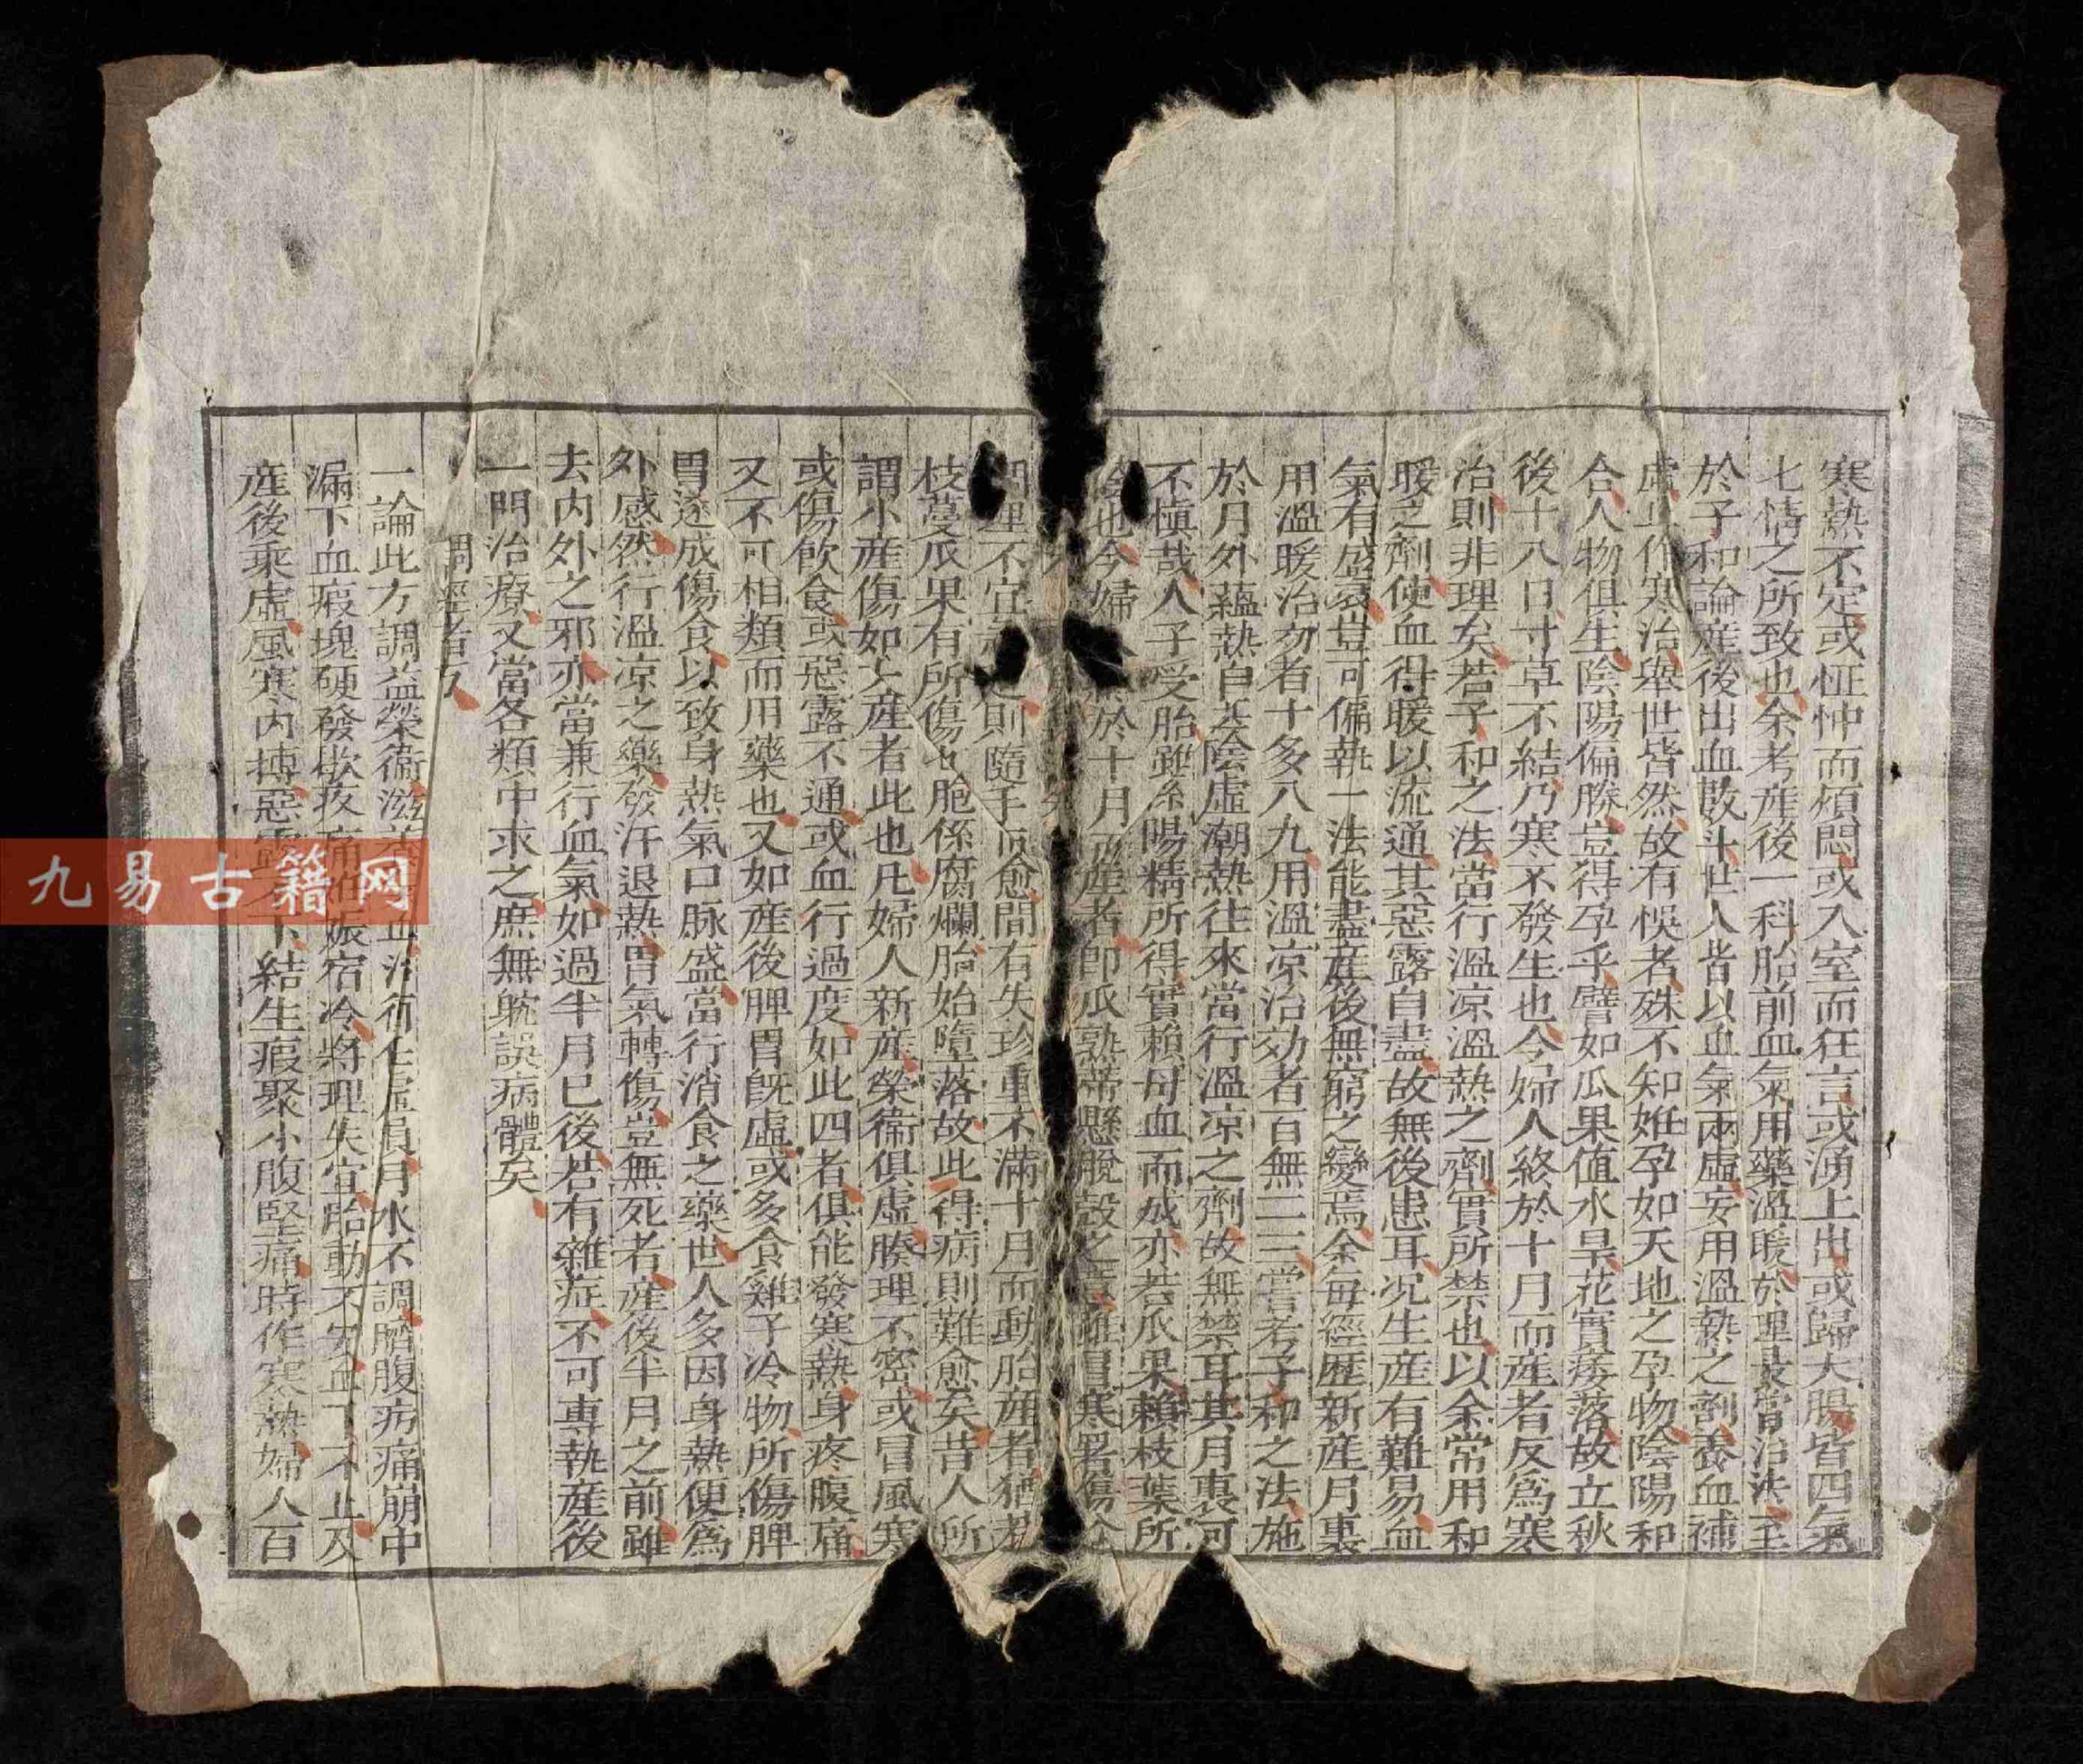 寒熱不定或怔忡而煩悶或入室而狂言或湧上出或歸大腸皆四氣
七情之所致也余考産後一科胎前血氣用藥溫暖於理最當治法至
於子和論産後出血數斗世人皆以血氣兩虛妄用溫熱之劑養血補
虛止作寒治舉世皆然故有悞者殊不知姙孕如天地之孕物陰陽和
合人物俱生陰陽偏勝豈得孕乎譬如瓜果值水旱花實痿落故立秋
後十八日寸草不結乃寒不發生也今婦人終於十月而産者反爲寒
治則非理矣若子和之法當行溫凉溫熱之劑實所禁也以余常用和
暖之劑使血得暖以流通其惡露自盡故無後患耳况生産有難易血
氣有盛衰豈可偏執一法能盡産後無窮之變焉余每經歷新産月裏
用溫暖治効者十多八九用溫凉治効者百無二三嘗考子和之法施
於月外蘊熱自去陰虛潮熱往來當行溫凉之劑故無禁耳其月裏可
不慎哉人子受胎雖系陽精所得實賴母血而成亦若瓜果賴枝葉所
也今婦於十月而産者即瓜熟蒂懸脫殼之雖冒寒暑傷
理不宜則隨手而愈間有失珍重不滿十月而動胎産者猶
枝蔓瓜果有所傷也胞係腐爛胎始墮落故此得病則難愈矣昔人所
謂小産傷如大産者此也凡婦人新産榮衞俱虛腠理不密或冒風寒
或傷飲食或惡露不通或血行過度如此四者俱能發寒熱身疼腹痛
又不可相類而用藥也又如産後脾胃旣虛或多食雞子冷物所傷脾
胃遂成傷食以致身熱氣口脉盛當行消食之藥世人多因身熱便爲
外感然行溫凉之藥發汗退熱胃氣轉傷豈無死者産後半月之前雖
去内外之邪亦當兼行血氣如過半月已後若有雜症不可專執産後
一門治療又當各類中求之庶無躭誤病體矣
調經者方
一論此方調益榮衞滋血治衝任虛損月水不調臍腹㽲痛崩中
漏下血瘕塊硬發歇疼痛娠宿冷將理失宜胎動不安血下不止及
産後乘虛風寒内搏惡露不下結生瘕聚小腹堅痛時作寒熱婦人百
九易古籍网